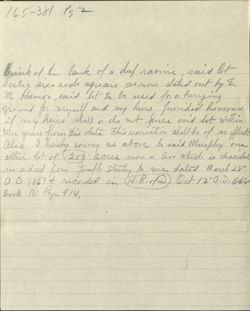 165-381 Pg 2
brink of the bank of a deep ravine, said lot
being six rods square as now staked out by E.
M. Hamor, said lot to be used for a burying
ground for myself and my heirs. Provided however
if my heirs shall or do not fence said lot within
ten years from this date this reservation shall be of no effect.
Also I hereby convey as above to said Murphy one
other lot of 200 acres more or less which is described
in a deed from Joseph to me dated March 28"
A.D. 1867 & recorded in (H.R. of D) Oct 12" A.D. 1867
Book Page 414.